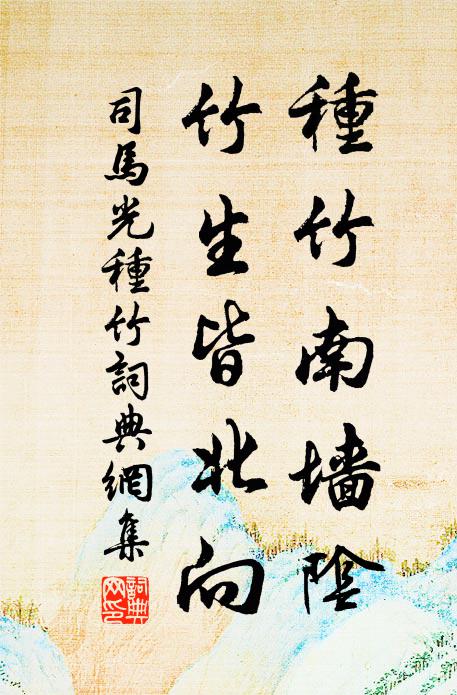 種竹南墙陰
竹生皆北向
司馬光種竹詞典網集
詞典
网印